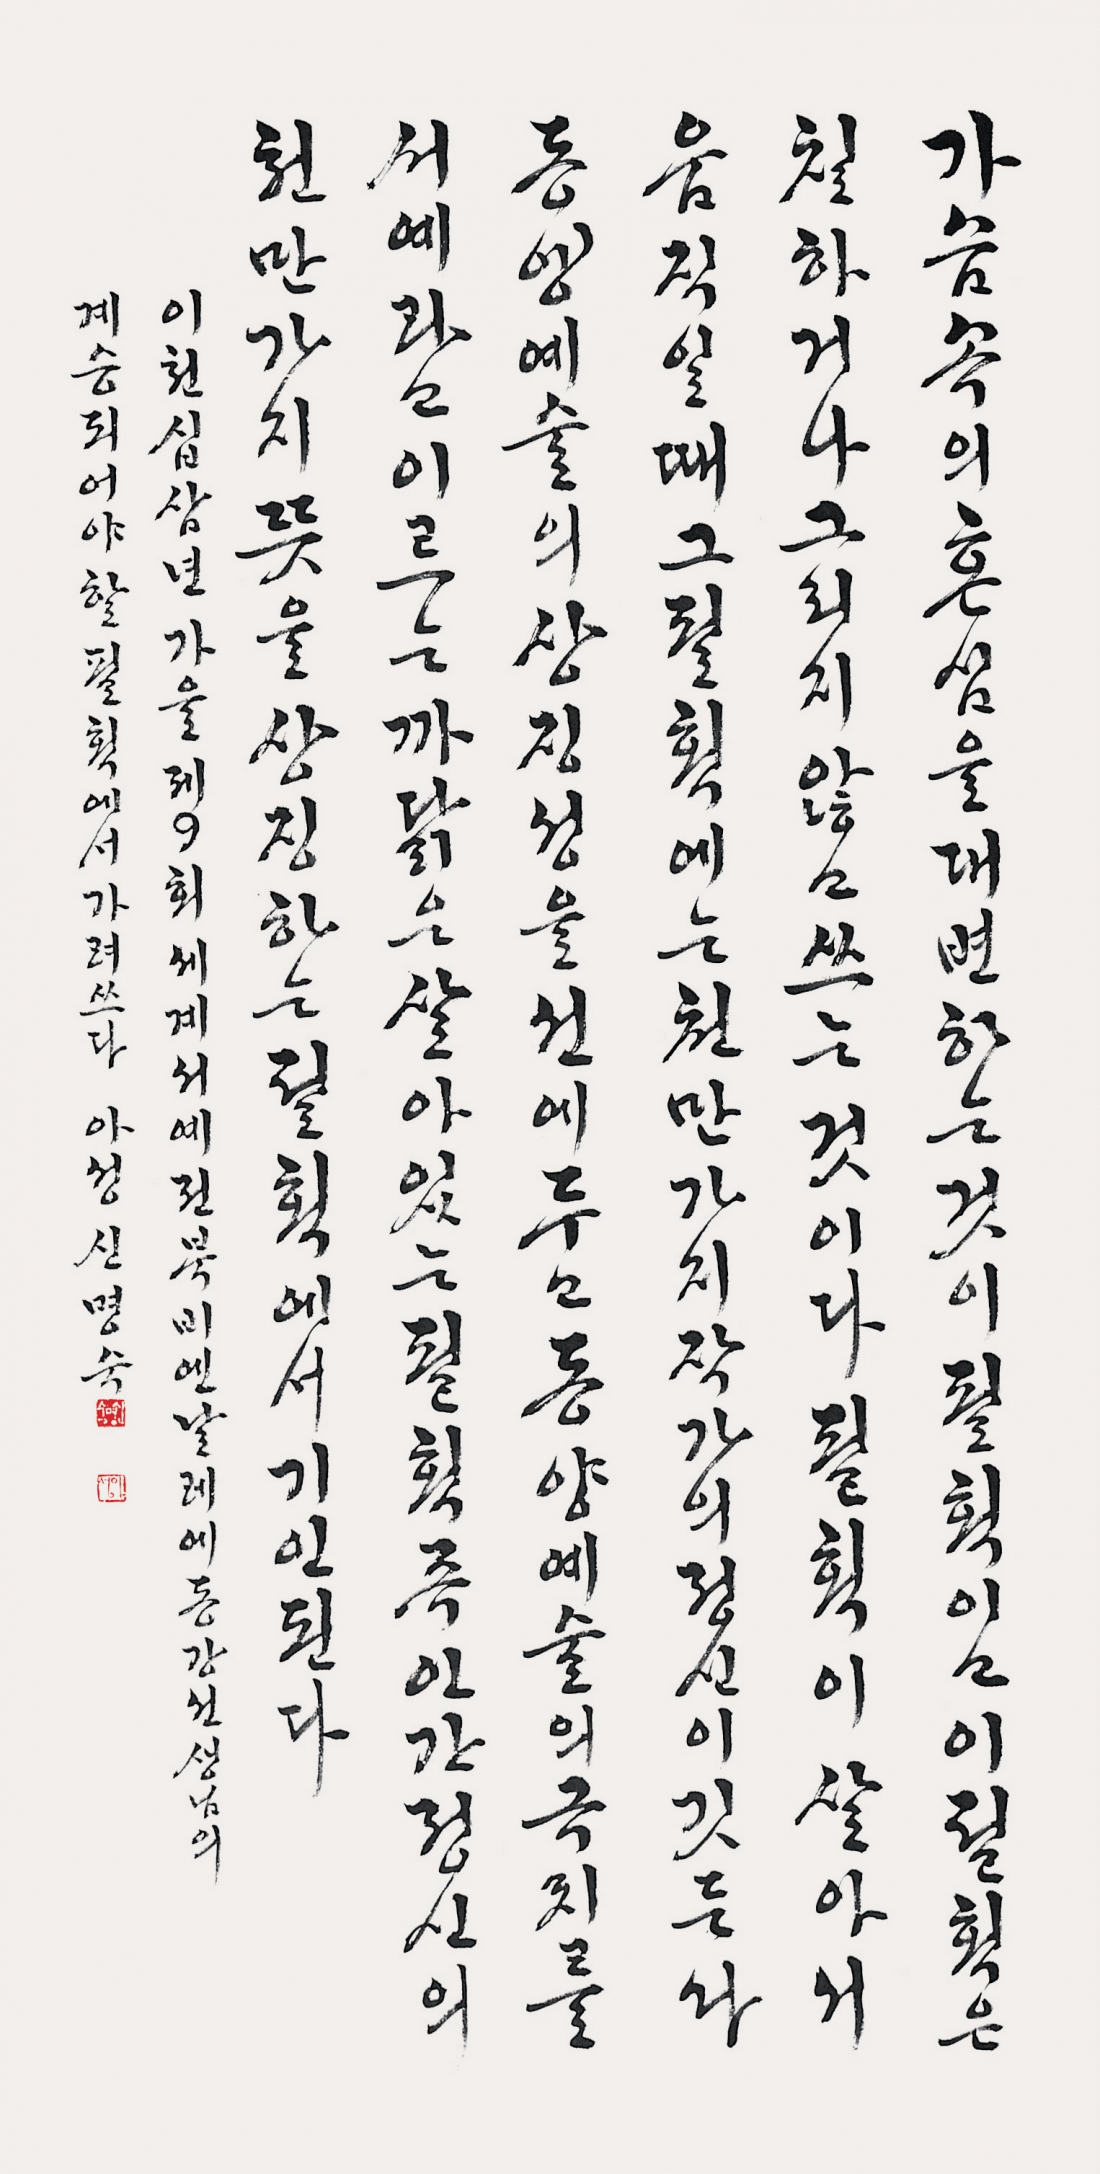 가슴속의혼심을대변하는것이필획이고이필획은
칠하거나그리지않고쓰는것이다필획이살아서
움직일때그필획에는천만가지작가의정신이깃든다
동양예술의상징성을선에두고동양예술의극치를
서예라고이르는까닭은살아있는필획즉인간정신의
천만가지뜻을상징하는필획에서기인된다
이천십삼년가을제9회세계서예전북비엔날레에동강선생님의
계승되어야할필획에서가려쓰다 아성신명숙